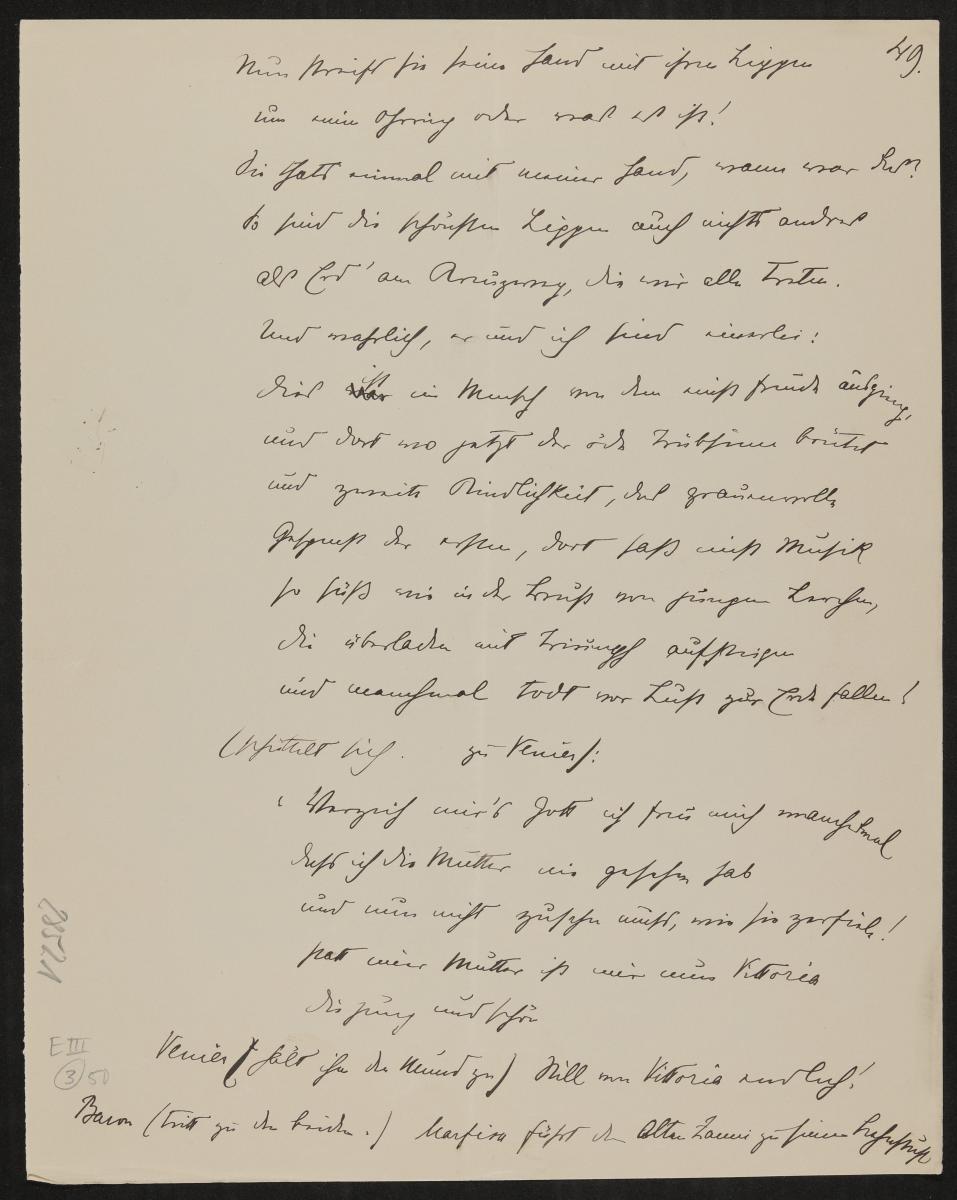 49.
Nun streift sie seine Hand mit ihren Lippen
um einen Ohrring oder was es ist!
Sie thats einmal mit meiner Hand, wann war das?
So sind die schönsten Lippen auch nichts andres
als Erd' am Kreuzweg, die wir alle treten.
Und wahrlich, er und ich sind einerlei:
dies ist ein Mensch von dem einst Freude ausging,
und dort wo jetzt der öde Trübsinn brütet
und zweite Kindlichkeit, das grauenvolle
Gespenst der ersten, dort saß einst Musik
so süß wie in der Brust von jungen Lerchen,
die überladen mit Triumph aufsteigen
und manchmal todt vor Lust zur Erde fallen!
(schüttelt sich. zu Venier):
Verzeih mir's Gott ich freu mich manchmal
dass ich die Mutter nie gesehen hab
und nun nicht zusehn muss, wie sie zerfiele!
statt einer Mutter ist mir nun Vittoria
die jung und schön
Venier (hält ihm den Mund zu) Still von Vittoria endlich!
Baron (tritt zu den beiden.) Marfisa führt den Alten zu seinem Lehnstuhl
28521
E III
3 50